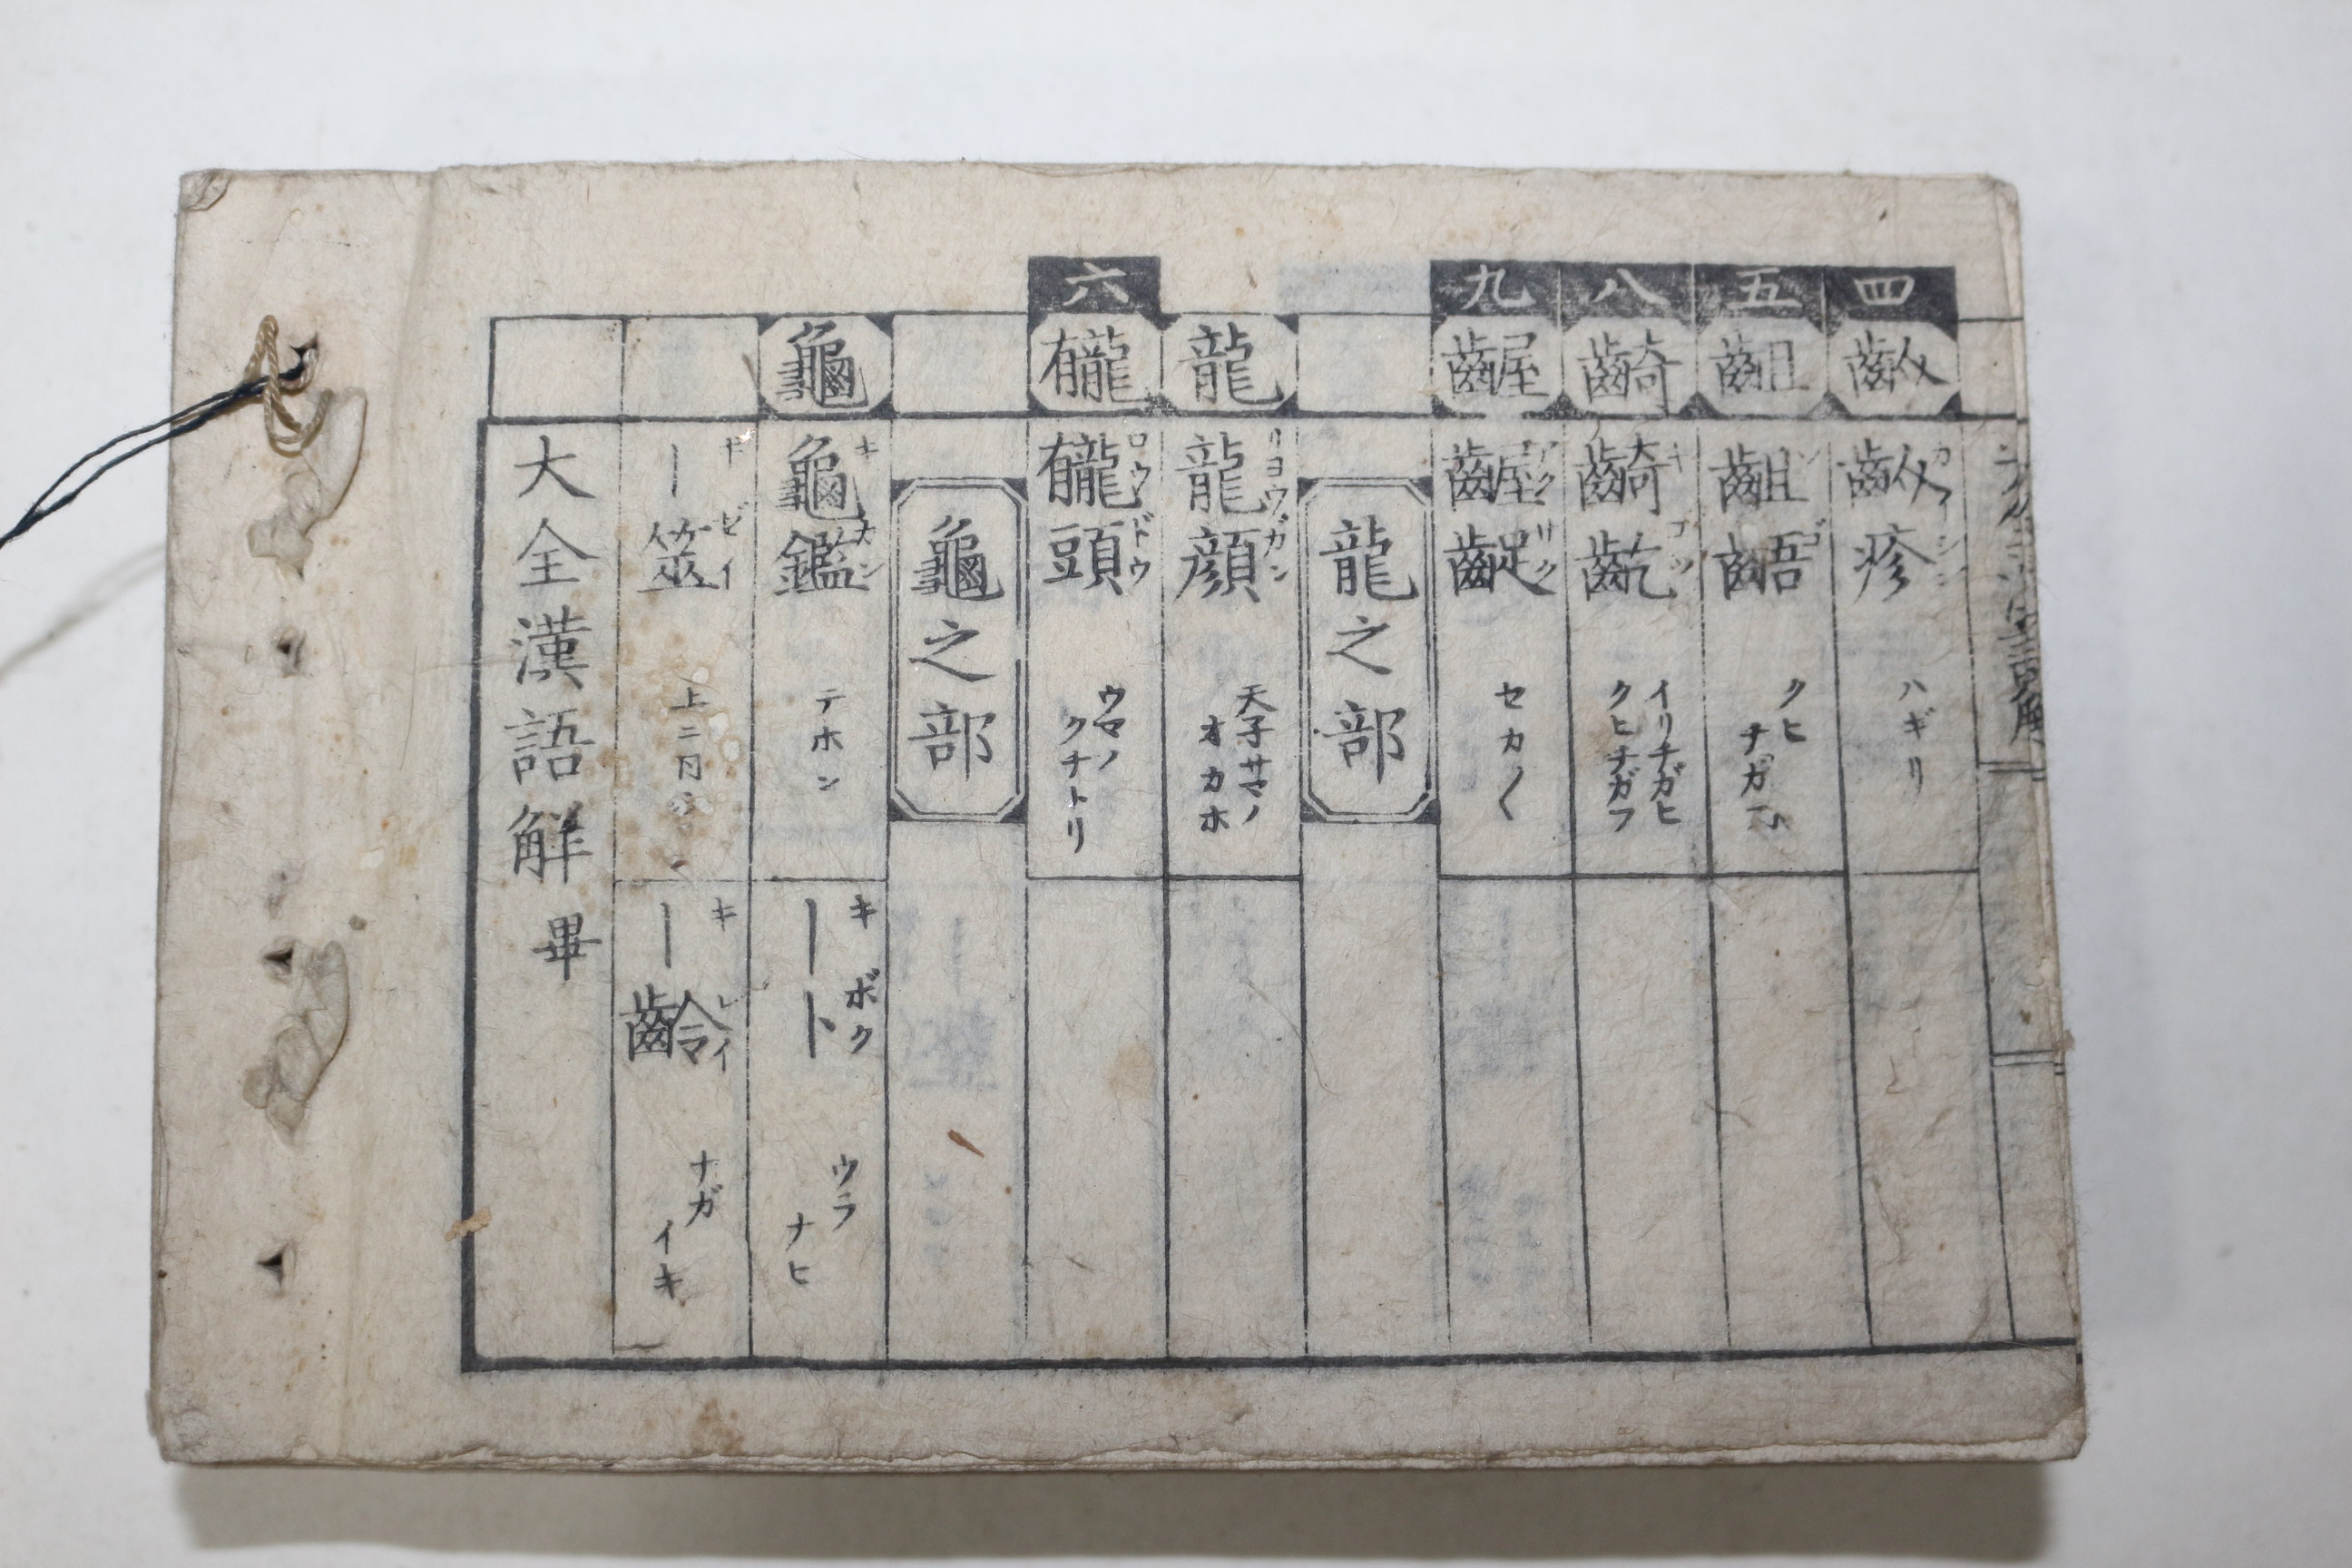 四
齘
齘疹
カイシン
ハギリ
五
齟
齟齬
ゴ
クヒ
チガフ
八
齮
齮齕
キコツ
イリチガヒ
クヒチガフ
九
齷
齷齪
アクサク
セカ〱
龍之部
龍
龍顔
リヨウガン
天子サマノ
オカホ
六
龓
龓頭
ロウドウ
ウマノ
クチトリ
龜之部
龜
龜鑑
キカン
テホン
｜卜
キボク
ウラ
ナヒ
｜筮
上ニ同シ
｜齡
キレイ
ナガ
イキ
大全漢語解 畢